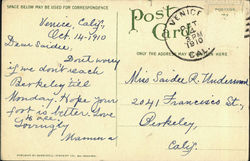 SPACE BELOW MAY BE USED FOR CORRESPONDENCE
Post Card
ONLY THE ADDRESS MAY
VENICE
OCT
1910
CAL.
Venice, Calif.,
Oct. 14-1910
Dear Saidee;
Don't worry
if we don't reach
Berkeley till
Monday. Hope your
foot is better. Love
Lovingly
Mamma
Miss Saidee R. Underwood
2041 Francisco St.
Berkeley,
Calif.